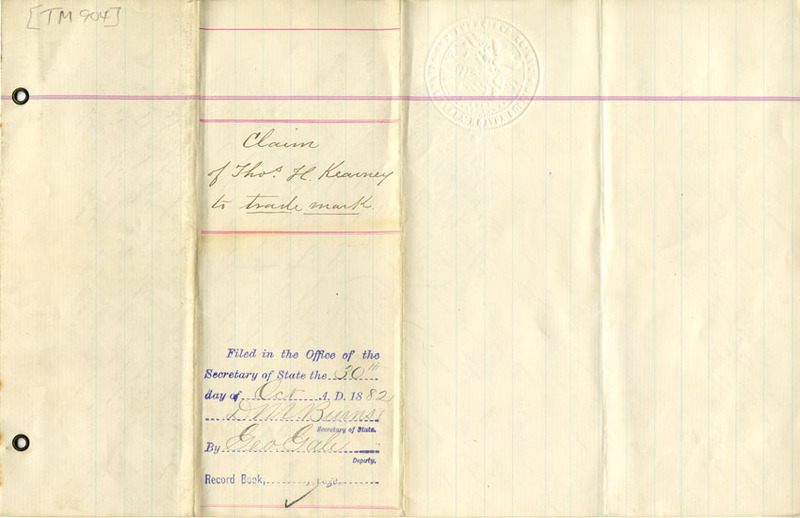 [TM 904]
Claim
of Thos. H. Kearney
to trade mark.
Filed in the Office of the
Secretary of State the 30th
day of Oct A. D. 1882
D M Burns
Secretary of State.
By Geo. Gale
Deputy.
Record Book, , page